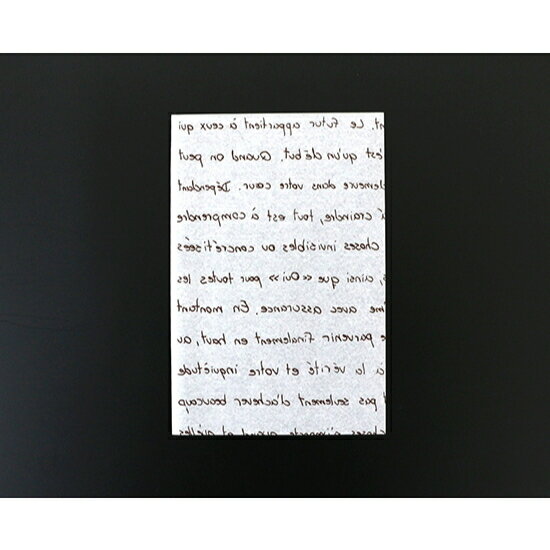 nt. Le Futur appartient à ceux qui
'est qu'un début. Quand on peut
demeure dans votre cœur. Dépendant
à craindre, tout est à comprendre
choses invisibles ou concrétisées
s, ainsi que «Oui» pour toutes les
me avec assurance. En montant
e parvenir finalement en haut, au
à la vérité et votre inquiétude
t pas seulement d'achever beaucoup
choses